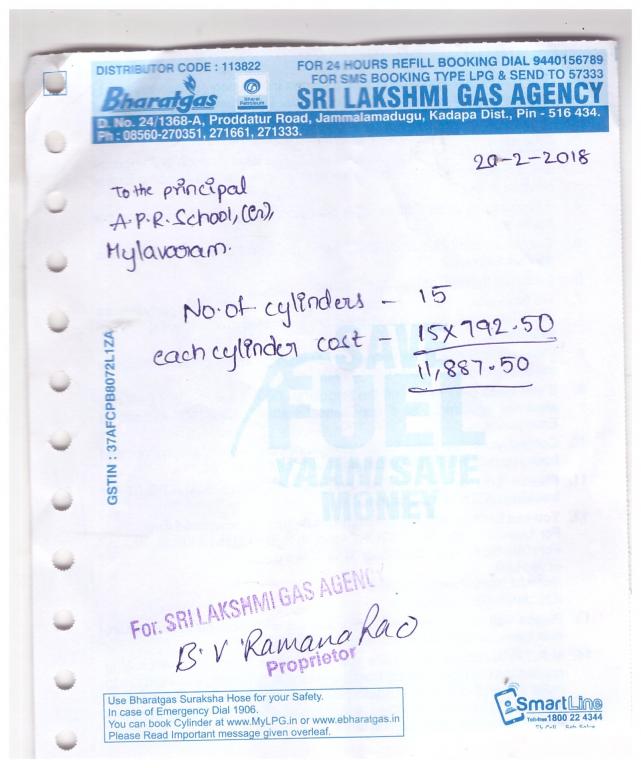 DISTRIBUTOR CODE : 113822
FOR 24 HOURS REFILL BOOKING DIAL 9440156789
FOR SMS BOOKING TYPE LPG & SEND TO 57333
Bharatgas
Bharat Petroleum
SRI LAKSHMI GAS AGENCY
D. No. 24/1368-A, Proddatur Road, Jammalamadugu, Kadapa Dist., Pin - 516 434.
Ph : 08560-270351, 271661, 271333.
20-2-2018
To the principal
A.P.R. School, (Gr),
Mylavaram.
No. of cylinders - 15
each cylinder cost - 15X792.50
11,887.50
GSTIN : 37AFCPB8072L1ZA
SAVE
FUEL
YAANI SAVE
MONEY
For. SRI LAKSHMI GAS AGENCY
B. V Ramana Rao
Proprietor
Use Bharatgas Suraksha Hose for your Safety.
In case of Emergency Dial 1906.
You can book Cylinder at www.MyLPG.in or www.ebharatgas.in
Please Read Important message given overleaf.
SmartLine
Toll-free 1800 22 4344